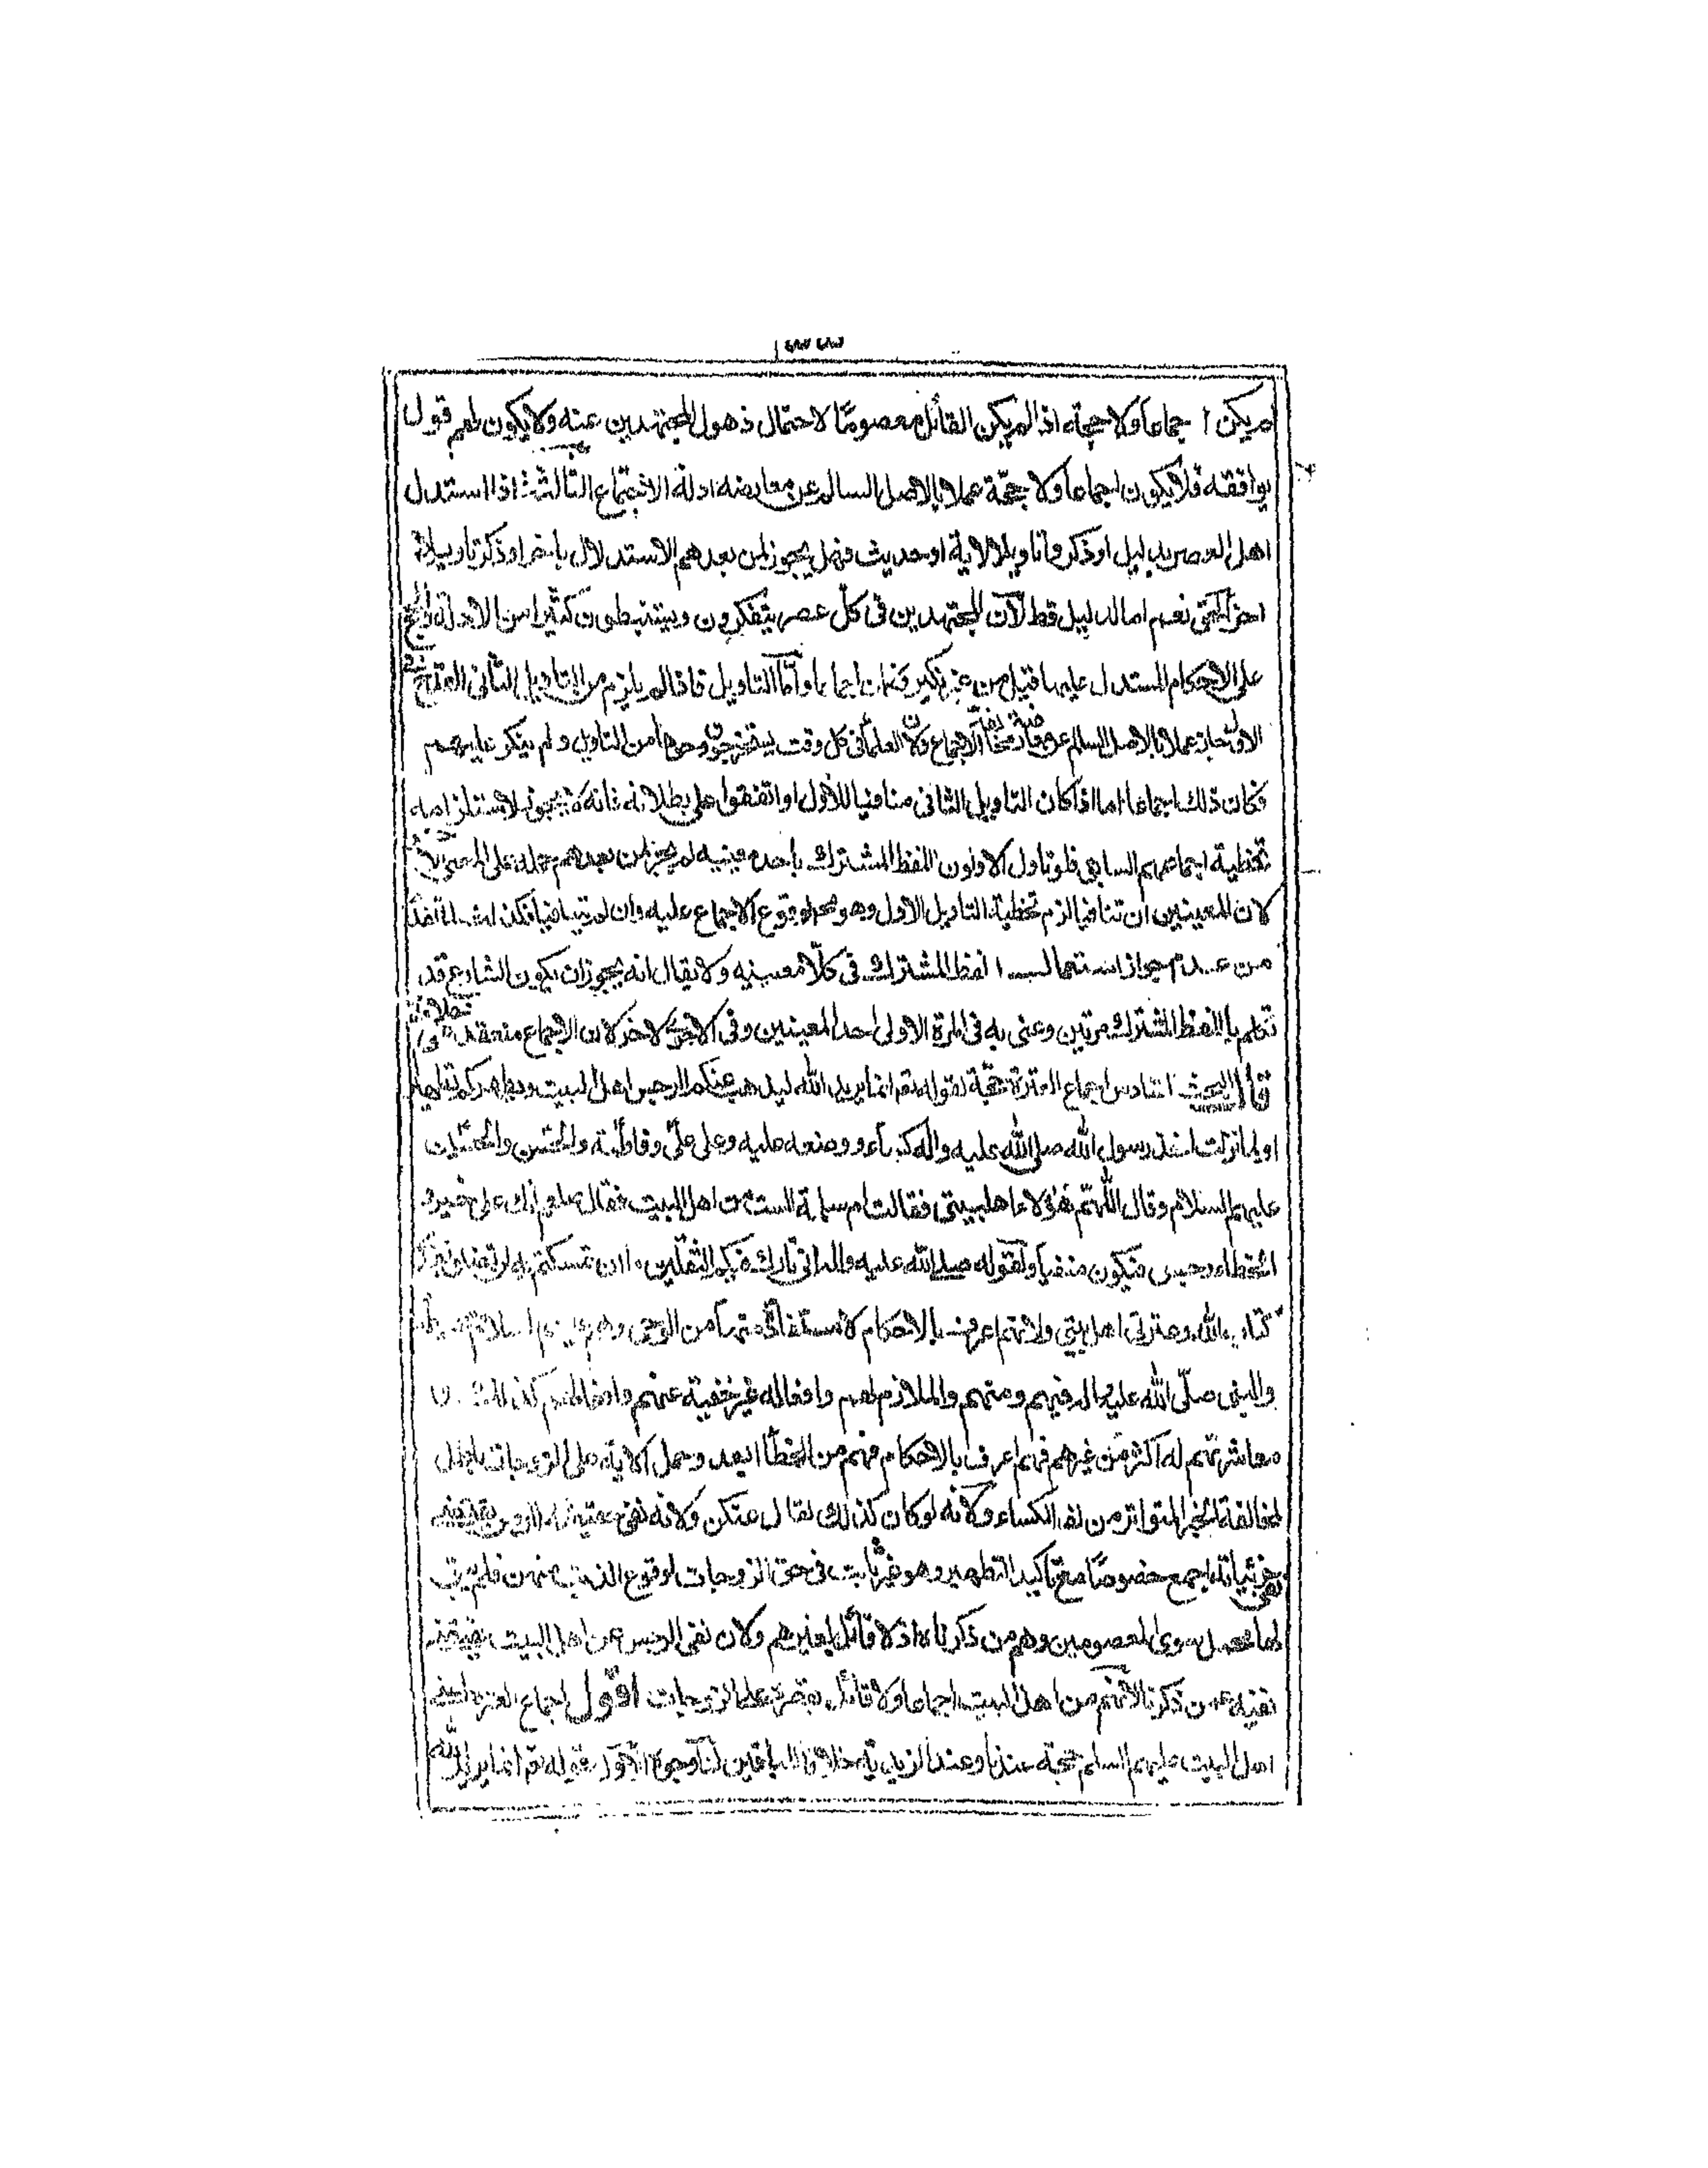 ١٣٣
لم يكن اجماعا ولا حجة اذا لم يكن القائل معصومًا لاحتمال ذهول المجتهدين عنه ولا يكون لهم قول
يوافقه فلا يكون اجماعا ولا حجّة عملا بالاصل السالم عن معارضه ادلة الاجماع الثالث اذا استدل
اهل العصر بدليل او ذكروا تاويلا لاية او حديث فهل يجوز لمن بعدهم الاستدلال باخر او ذكر تاويلا
اخر الحق نعم اما الدليل فظ لان المجتهدين فى كلّ عصر يتفكرون ويستنبطون كثيرا من الادلة
على الاحكام المستدل عليها قبل من غير نكير فكان اجماعا واما التاويل فاذا لم يلزم من التاويل الثانى القدح
الاول جاز عملا بالاصل السالم عن الاجماع ولان العلماء فى كل وقت يستخرجون وجوها من التاويل ولم ينكر عليهم
فكان ذلك اجماعا اما اذا كان التاويل الثانى منافيا للاول او اتفقوا على بطلانه فانه لا يجوز لاستلزامه
تخطية اجماعهم السابق فلو تاول الاولون اللفظ المشترك باحد معنييه لم يجز لمن بعدهم حمله على المعنى
لان المعنيين ان تنافيا لزم تخطية التاويل الاول وهو مح لوقوع الاجماع عليه وان لم يتنافيا فكذلك لما تقدم
من عدم جواز استعمال اللفظ المشترك فى كلا معنييه ولا يقال انه يجوز ان يكون الشارع قد
تكلم باللفظ المشترك مرتين وعنى به فى المرة الاولى احد المعنيين وفى الاخرى الاخر لان الاجماع منعقد على خلافه
قال البحث السادس اجماع العترة حجّة لقوله تع انما يريد الله ليذهب عنكم الرجس اهل البيت ويطهركم تطهيرا
ولما نزلت اخذ رسول الله صلى الله عليه واله كساء ووضعه عليه وعلى علىّ وفاطمة والحسن والحسين
عليهم السلام وقال اللهمّ هؤلاء اهل بيتى فقالت ام سلمة الست من اهل البيت فقال صلعم انك على خير و
الخطاء رجس فيكون منفيا ولقوله صلى الله عليه واله انى تارك فيكم الثقلين ما ان تمسكتم به لن تضلوا
كتاب الله وعترتى اهل بيتى ولانهم اعرف بالاحكام لاستفادتها من الوحى وهم عليهم السلام
والنبى صلّى الله عليه واله فيهم ومنهم والملازم لهم وافعاله غير خفية عنهم وافعالهم كذلك
معاشرتهم له اكثر من غيرهم فهم اعرف بالاحكام فهم من الخطأ ابعد وحمل الاية على الزوجات باطل
لمخالفة الخبر المتواتر من لف الكساء ولانه لو كان كذلك لقال عنكن ولانه نفى حقيقة الرجس يقتضى
نفى جزئياته اجمع خصوصًا مع تاكيد التطهير وهو غير ثابت فى حق الزوجات لوقوع الذنب منهن فلم يبق
لها محمل سوى المعصومين وهم من ذكرناه اذ لا قائل بغيرهم ولان نفى الرجس عن اهل البيت يقتضى
نفيه عمن ذكرنا لانهم من اهل البيت اجماعا ولا قائل بقصره على الزوجات اقول اجماع العترة اعنى
اهل البيت عليهم السلم حجة عندنا وعند الزيدية خلافا للباقين لنا وجوه الاول قوله تع انما يريد الله